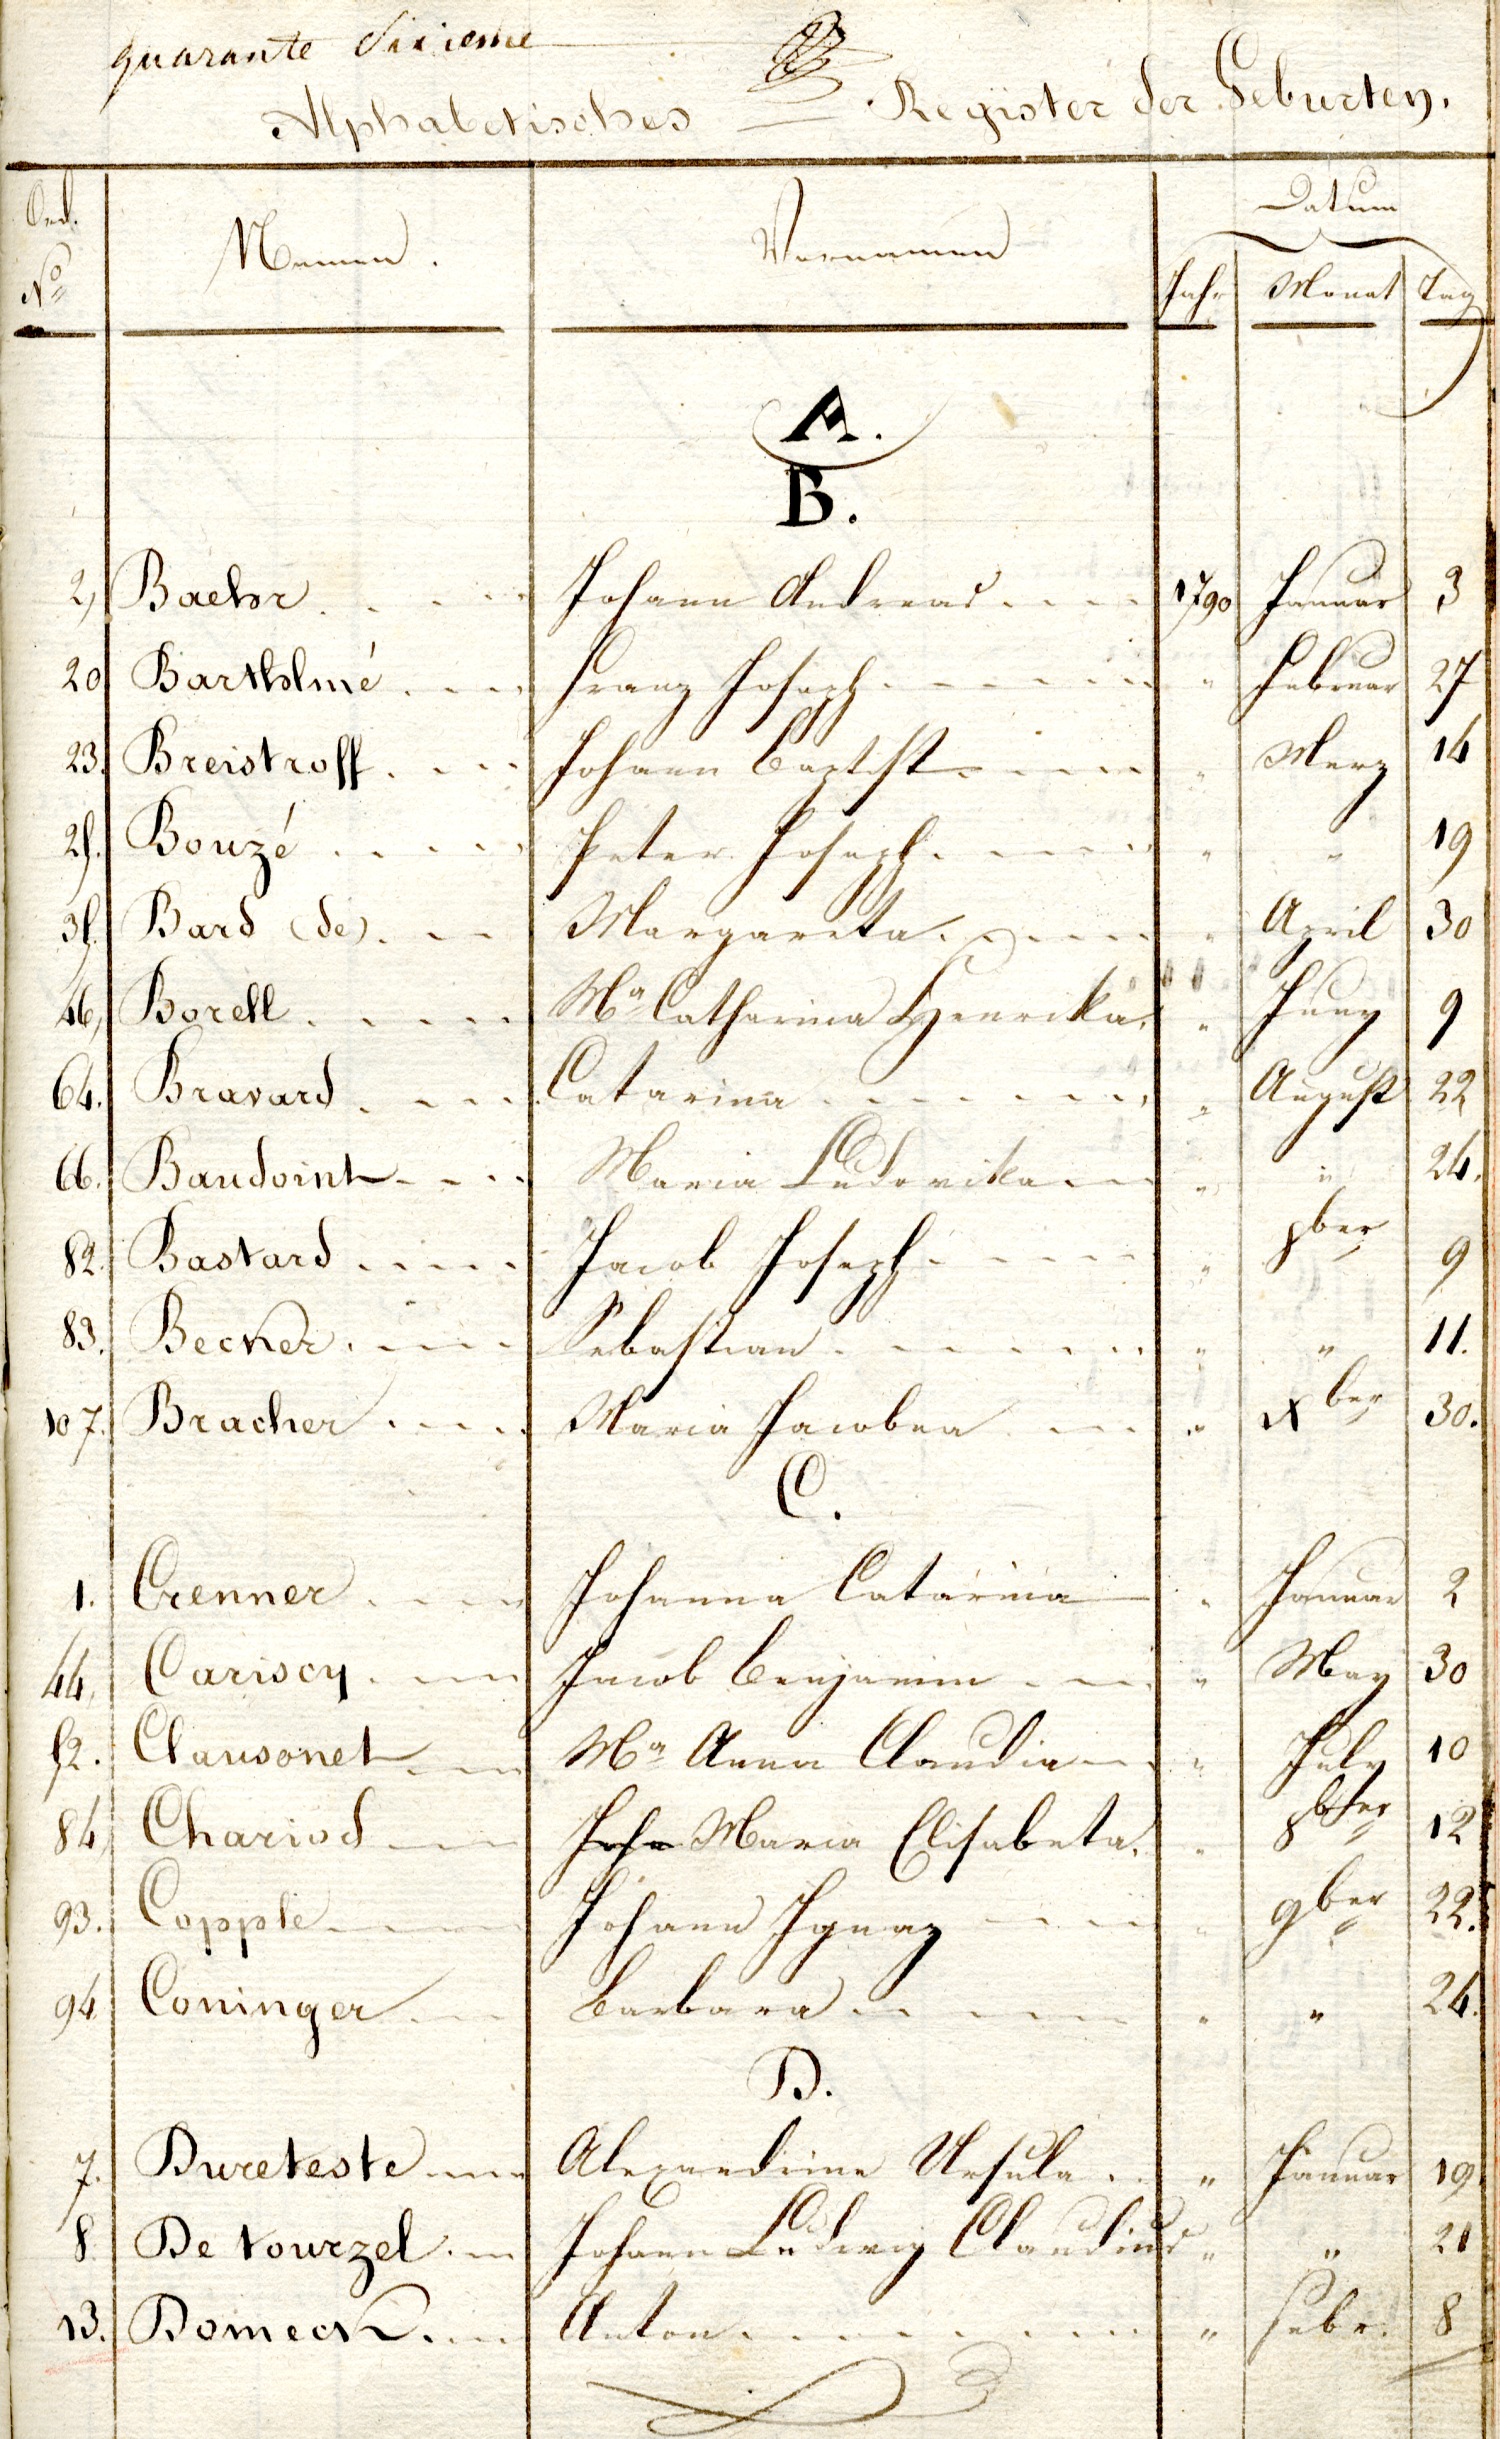 quarante Sixieme
Alphabetisches Register der Geburten.
Ord. No Namen. Vornamen Datum
Jahr Monat Tag
A.
B.
2, Baehr Johann Andreas 1790 Januar 3
20 Bartholmé Franz Joseph " Februar 27
23. Breistroff Johann Baptist " Merz 14
25. Bouzé Peter Joseph " " 19
35. Bard (de) Margareta " April 30
46, Borell Ma Catharina Henrika " Juny 9
64. Bravard Catarina " August 22
66. Baudoint Maria Ludovika " " 24.
82. Bastard Jacob Joseph " 8ber 9
83. Becker Sebastian " " 11.
107. Bracher Maria Jacobea " Xber 30.
C.
1. Crenner Johanna Catarina " Januar 2
44, Cariscy Jacob Benjamin " May 30
52. Clausonet Ma Anna Claudia " July 10
84, Chariod Maria Elisabeta. " 8ber 12
93. Copple Johann Ignaz " 9ber 22.
94 Coninger Barbara " " 24.
D.
7. Dureteste Alexandrine Ursula " Januar 19
8 De tourzel Johann Ludwig Claudius " " 21
13. Domeck Anton " Febr. 8